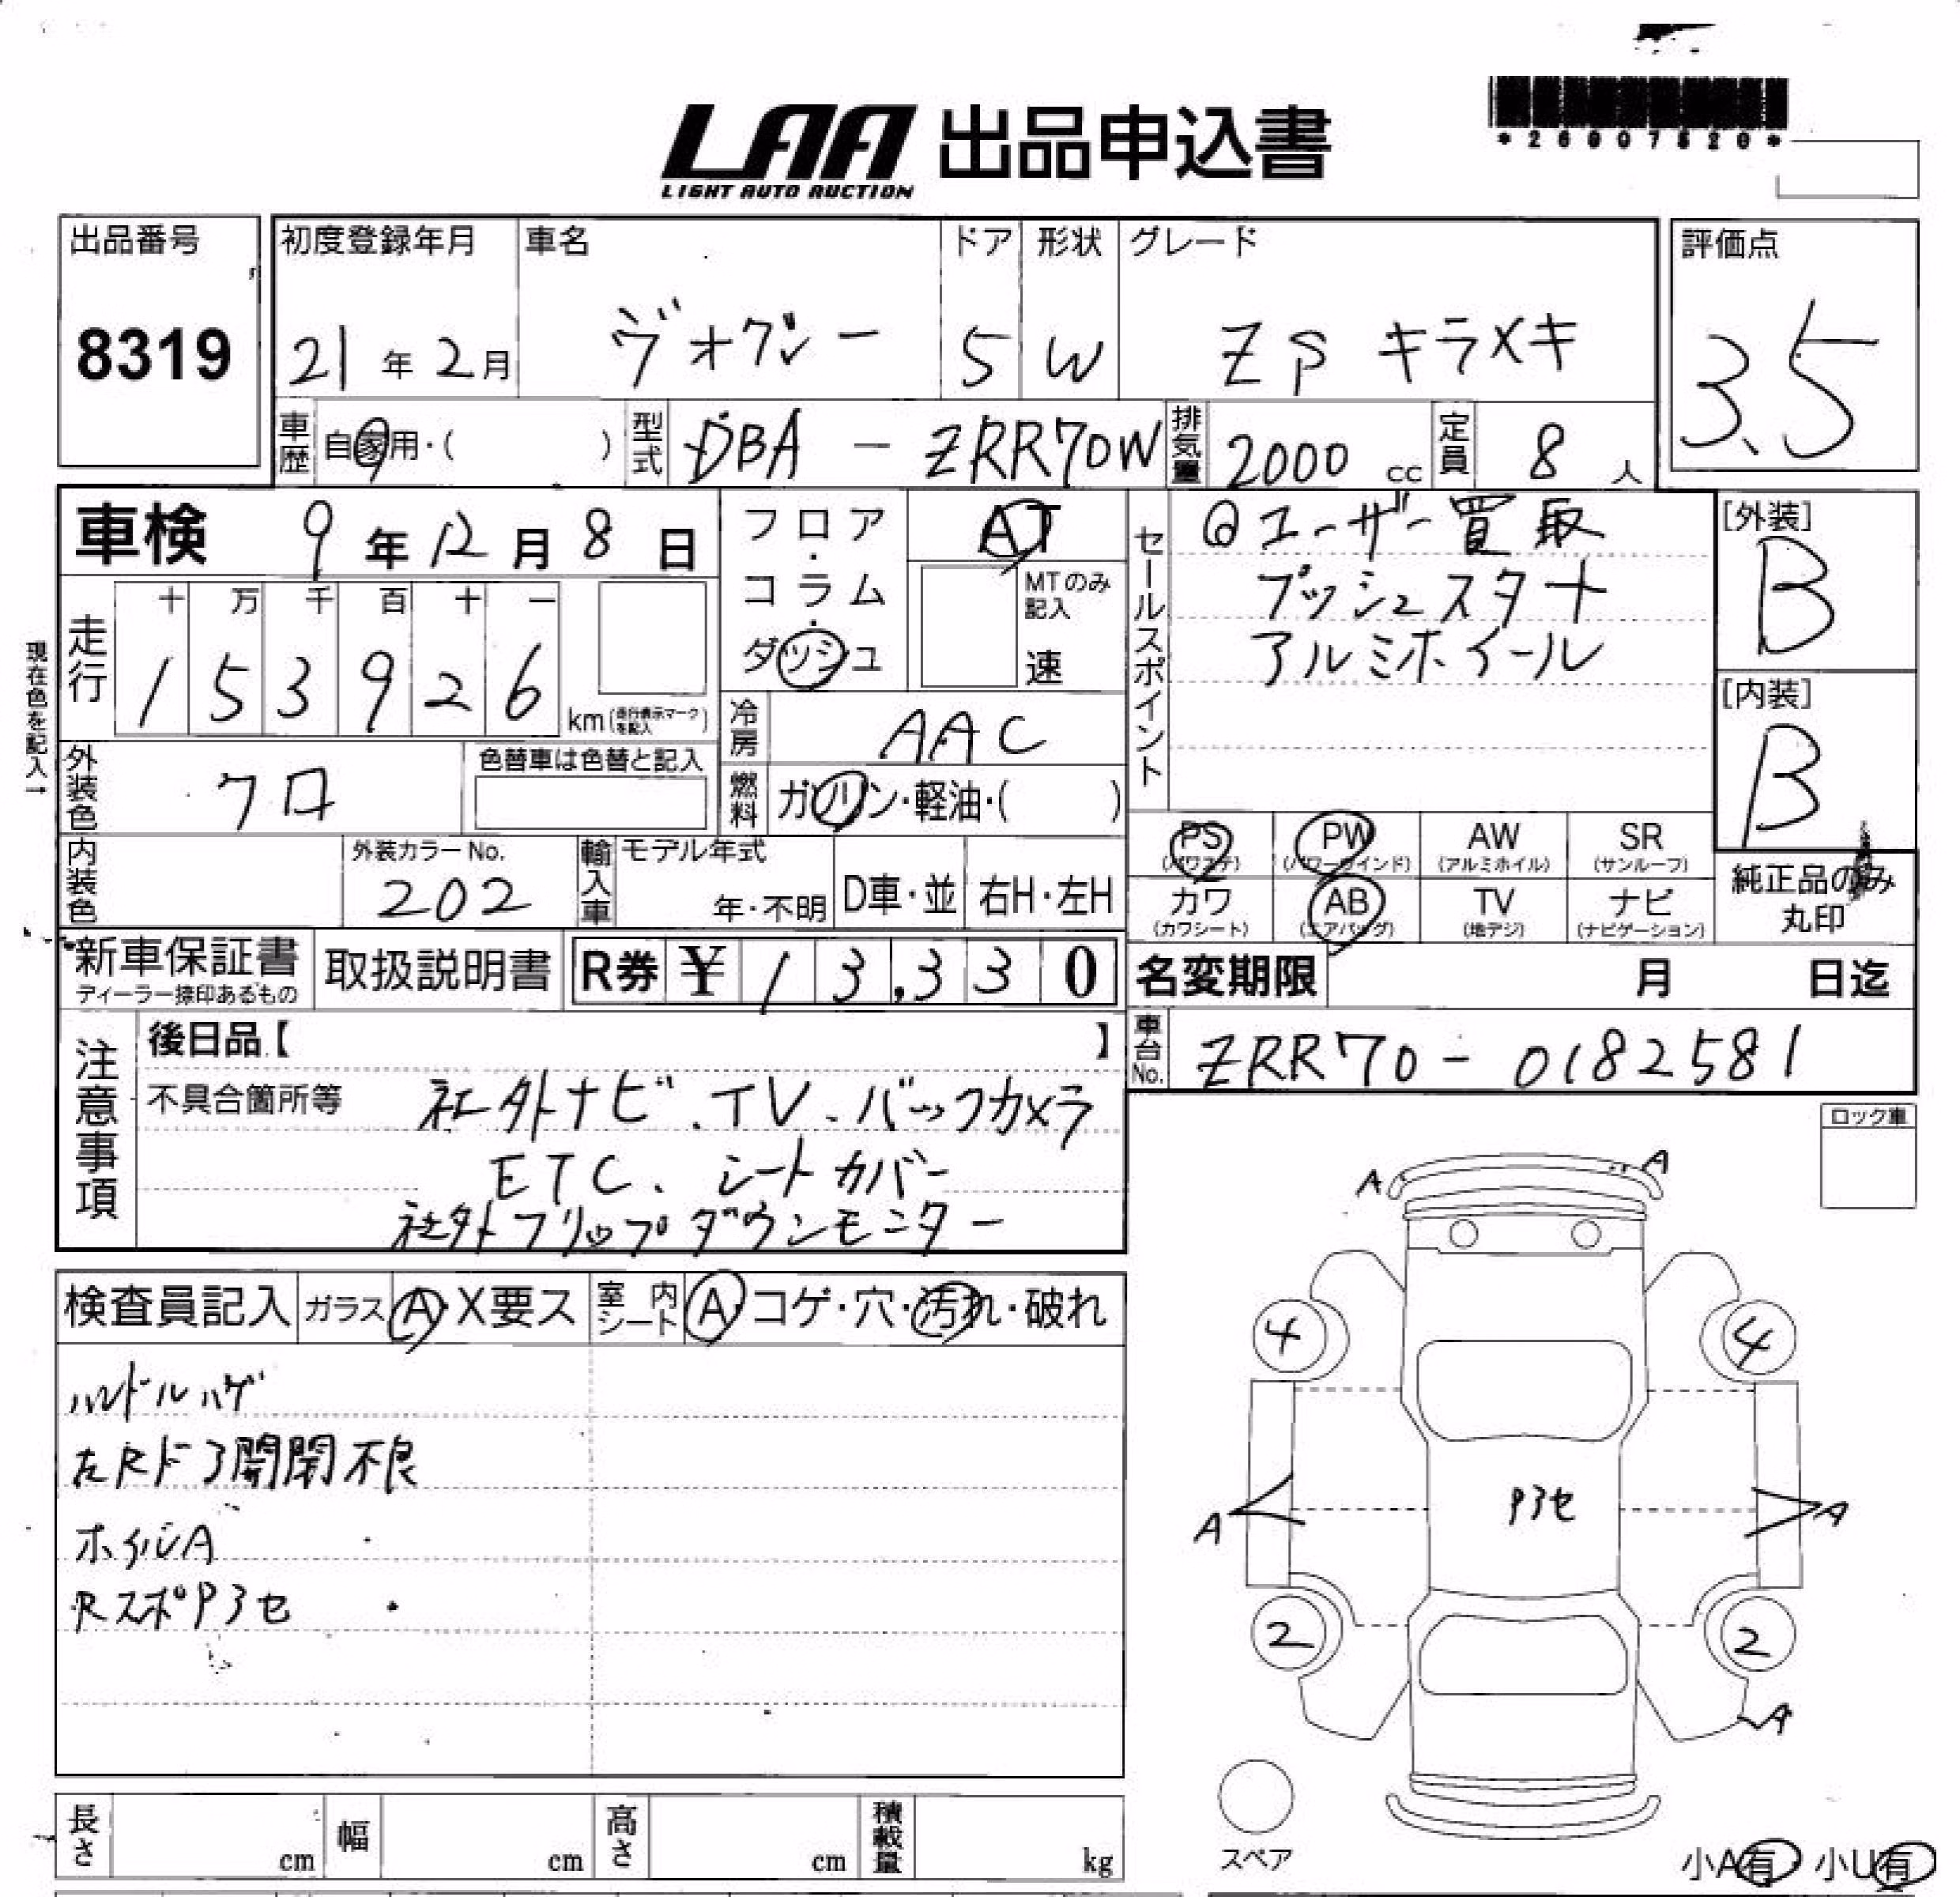 LAA 出品申込書
LIGHT AUTO AUCTION
*26007520*
出品番号
8319
初度登録年月
21年2月
車名
ヴォクシー
ドア
5
形状
W
グレード
ZS キラメキ
評価点
3.5
車歴
自家用・( )
型式
DBA - ZRR70W
排気量
2000 cc
定員
8 人
車検 9年12月8日
フロア・コラム・ダッシュ
AT
MTのみ記入
速
セールスポイント
◎ユーザー買取
プッシュスタート
アルミホイール
[外装]
B
[内装]
B
現在色を記入→
走行
十 万 千 百 十 一
1 5 3 9 2 6
km(走行表示マークを記入)
冷房
AAC
外装色
クロ
色替車は色替と記入
燃料
ガソリン・軽油・( )
内装色
外装カラーNo.
202
輸入車
モデル年式
年・不明
D車・並
右H・左H
PS (パワステ)
PW (パワーウインド)
AW (アルミホイル)
SR (サンルーフ)
カワ (カワシート)
AB (エアバッグ)
TV (地デジ)
ナビ (ナビゲーション)
純正品のみ丸印
新車保証書
ディーラー捺印あるもの
取扱説明書
R券 ¥13,330
名変期限 月 日迄
車台No.
ZRR70-0182581
注意事項
後日品【 】
不具合箇所等
社外ナビ、TV、バックカメラ
ETC、シートカバー
社外フリップダウンモニター
ロック車
検査員記入
ガラス A・X要ス
室内シート A・コゲ・穴・汚れ・破れ
ハンドルハゲ
左Rドア開閉不良
ホイルA
RスポP3セ
A
A
4
4
P3セ
A
A
2
2
A
スペア
小A有・小U有
長さ cm
幅 cm
高さ cm
積載量 kg